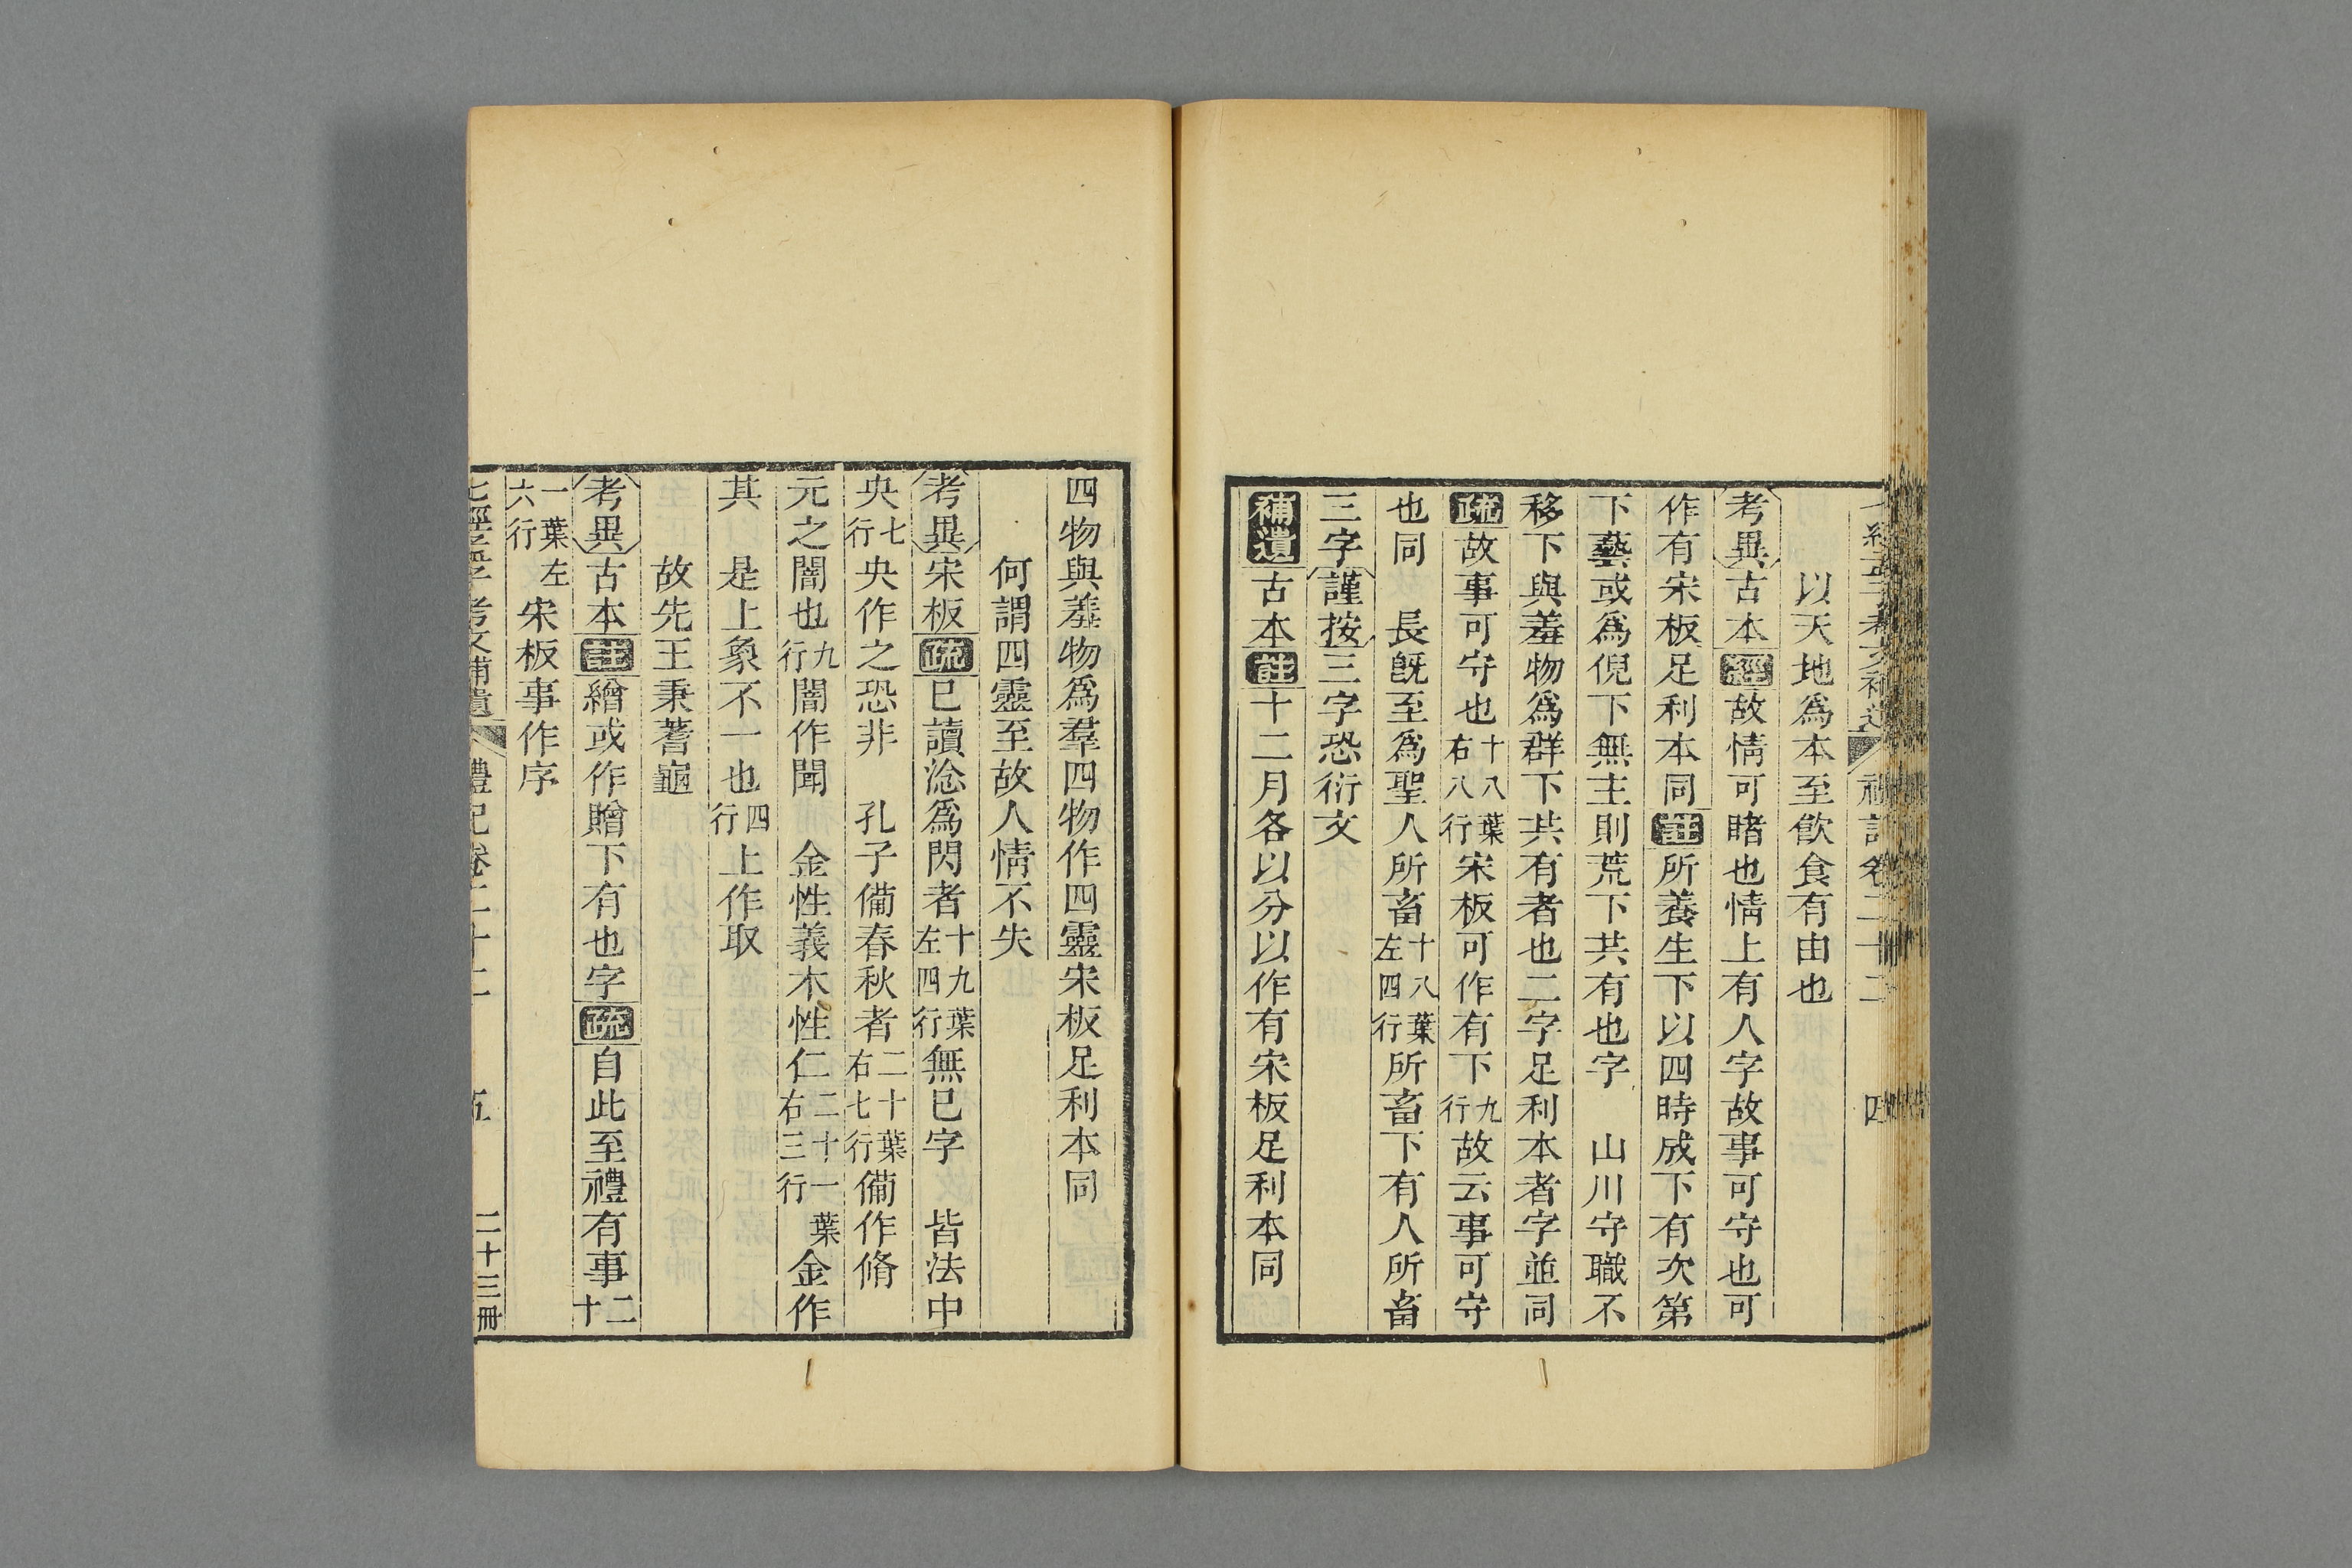 七經孟子考文補遺 禮記卷二十二 四
以天地爲本至飮食有由也
考異古本經故情可睹也情上有人字故事可守也可
作有宋板足利本同註所養生下以四時成下有次第
下藝或爲倪下無主則荒下共有也字 山川守職不
移下與羞物爲群下共有者也二字足利本者字並同
疏故事可守也十八葉右八行宋板可作有下九行故云事可守
也同 長旣至爲聖人所畜十八葉左四行所畜下有人所畜
三字謹按三字恐衍文
補遺古本註十二月各以分以作有宋板足利本同
四物與羞物爲羣四物作四靈宋板足利本同
何謂四靈至故人情不失
考異宋板疏已讀淰爲閃者十九葉左四行無已字 皆法中
央七行央作之恐非 孔子備春秋者二十葉右七行備作脩
元之闇也九行闇作聞 金性義木性仁二十一葉右三行金作
其 是上象不一也四行上作取
故先王秉蓍龜
考異古本註繒或作贈下有也字疏自此至禮有事二十
一葉左六行宋板事作序
七經孟子考文補遺 禮記卷二十二 五 二十三冊